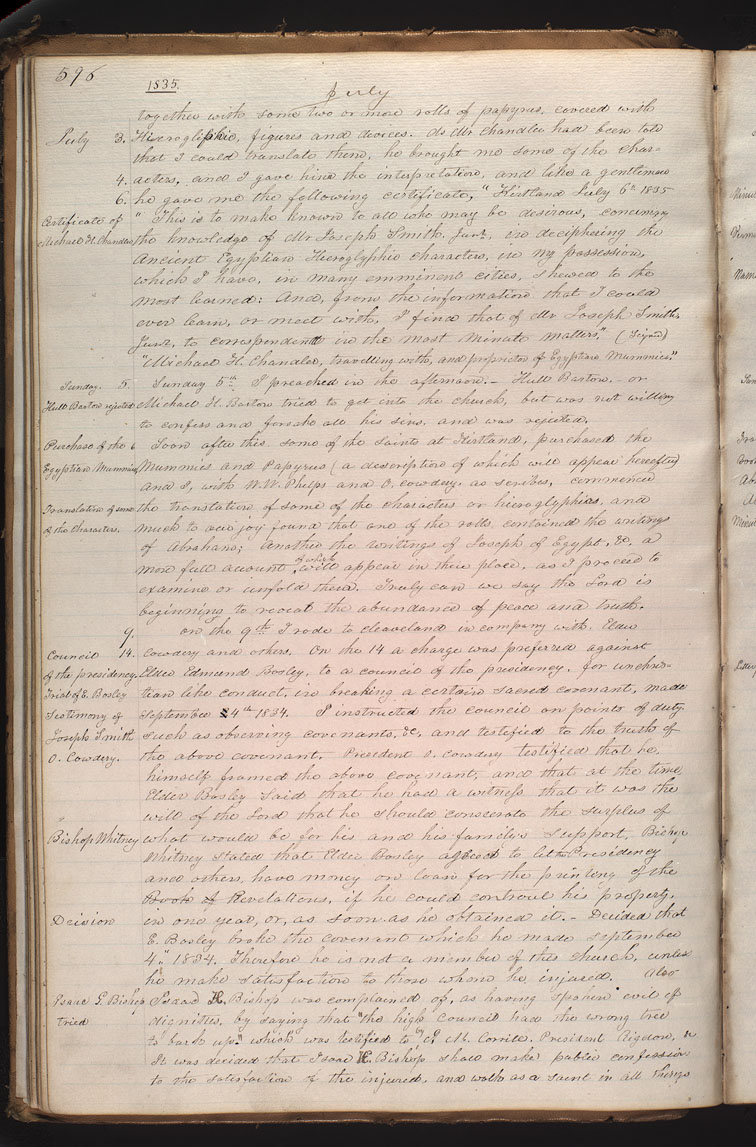 596
1835.
July
together with some two or more rolls of papyrus, covered with
July 3. Hieroglyphic, figures and devices. As Mr Chandler had been told
that I could translate them, he brought me some of the char-
4. acters, and I gave him the interpretation, and like a gentleman
6. he gave me the following certificate, "Kirtland July 6th 1835
Certificate of "This is to make known to all who may be desirous, concerning
Michael H. Chandler the knowledge of Mr Joseph Smith Junr, in deciphering the
ancient Egyptian Hieroglyphic characters, in my possession,
which I have, in many emminent cities, shewed to the
most learned: And, from the information that I could
ever learn, or meet with, I find that of Mr Joseph Smith
Junr, to correspond in the most minute matters." (Signed)
"Michael H. Chandler, travelling with, and proprietor of Egyptian Mummies."
Sunday. 5. Sunday 5th I preached in the afternoon.— Hull Barton. or
Hull Barton rejected Michael H. Barton tried to get into the church, but was not willing
to confess and forsake all his sins, and was rejected.
Purchase of the 6 Soon after this, some of the Saints at Kirtland, purchased the
Egyptian Mummies Mummies and Papyrus (a description of which will appear hereafter)
and I, with W.W. Phelps and O. Cowdery, as scribes, commenced
Translation of some the translation of some of the characters or hieroglyphics, and
of the Characters. much to our joy found that one of the rolls contained the writings
of Abraham; another the writings of Joseph of Egypt, &c, a
more full account of which will appear in their place, as I proceed to
examine or unfold them. Truly can we say the Lord is
beginning to reveal the abundance of peace and truth.
9. On the 9th I rode to Cleaveland in company with Elder
Council 14. Cowdery and others. On the 14 a charge was preferred against
of the presidency. Elder Edmund Bosley, to a council of the presidency, for unchris-
Trial of E. Bosley tian like conduct, in breaking a certain sacred covenant, made
Testimony of September 4th 1834. I instructed the council on points of duty
Joseph Smith such as observing covenants, &c, and testified to the truth of
O. Cowdery. the above covenant. President O. Cowdery testified that he
himself framed the above covenant, and that at the time
Elder Bosley said that he had a witness that it was the
will of the Lord that he should consecrate the surplus of
Bishop Whitney what would be for his and his family's support. Bishop
Whitney stated that Elder Bosley agreed to let the Presidency
and others, have money on loan for the printing of the
Book of Revelations, if he could controul his property.
Decision in one year, or, as soon as he obtained it.— Decided that
E. Bosley broke the covenant which he made September
4." 1834. Therefore he is not a member of this church, unless
he make satisfaction to those whom he injured. Also
Isaac G. Bishop Isaac H. Bishop was complained of, as having spoken evil of
tried dignities, by saying that "the high council had the wrong tree
to bark up." which was testified to by J. M. Corrill. President Rigdon, &c
It was decided that Isaac H. Bishop shall make public confession
to the satisfaction of the injured, and walk as a saint in all things